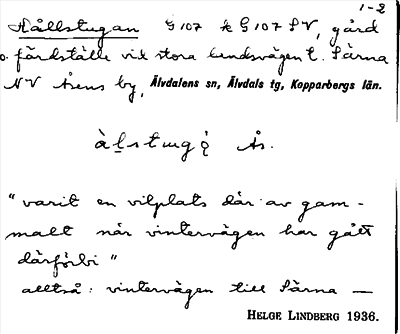 1-2
Hållstugan G 107 k G 107 S V, gård
o. färdställe vid stora landsvägen t. Särna
N V Åsens by, Älvdalens sn, Älvdals tg, Kopparbergs län.
Ås.
"varit en vilplats där av gam-
malt när vintervägen har gått
därförbi"
alltså: vintervägen till Särna —
HELGE LINDBERG 1936.